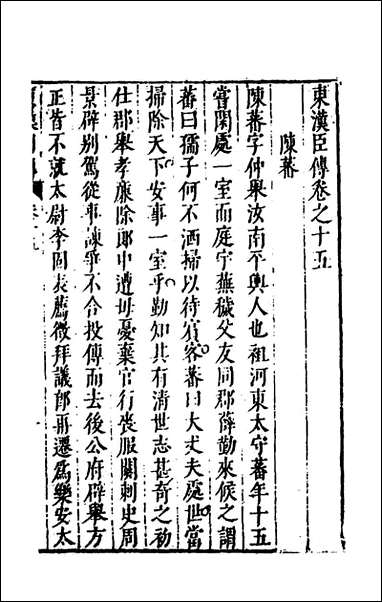 東漢臣傳卷之十五
陳蕃
陳蕃字仲舉汝南平輿人也祖河東太守蕃年十五
嘗閑處一室而庭宇蕪穢父友同郡薛勤來候之謂
蕃曰孺子何不洒掃以待賓客蕃曰大丈夫處世當
掃除天下安事一室乎勤知其有清世志甚奇之初
仕郡舉孝廉除郎中遭母憂棄官行喪服闋刺史周
景辟別駕從事諫爭不合投傳而去後公府辟舉方
正皆不就太尉李固表薦徵拜議郎再遷爲樂安太